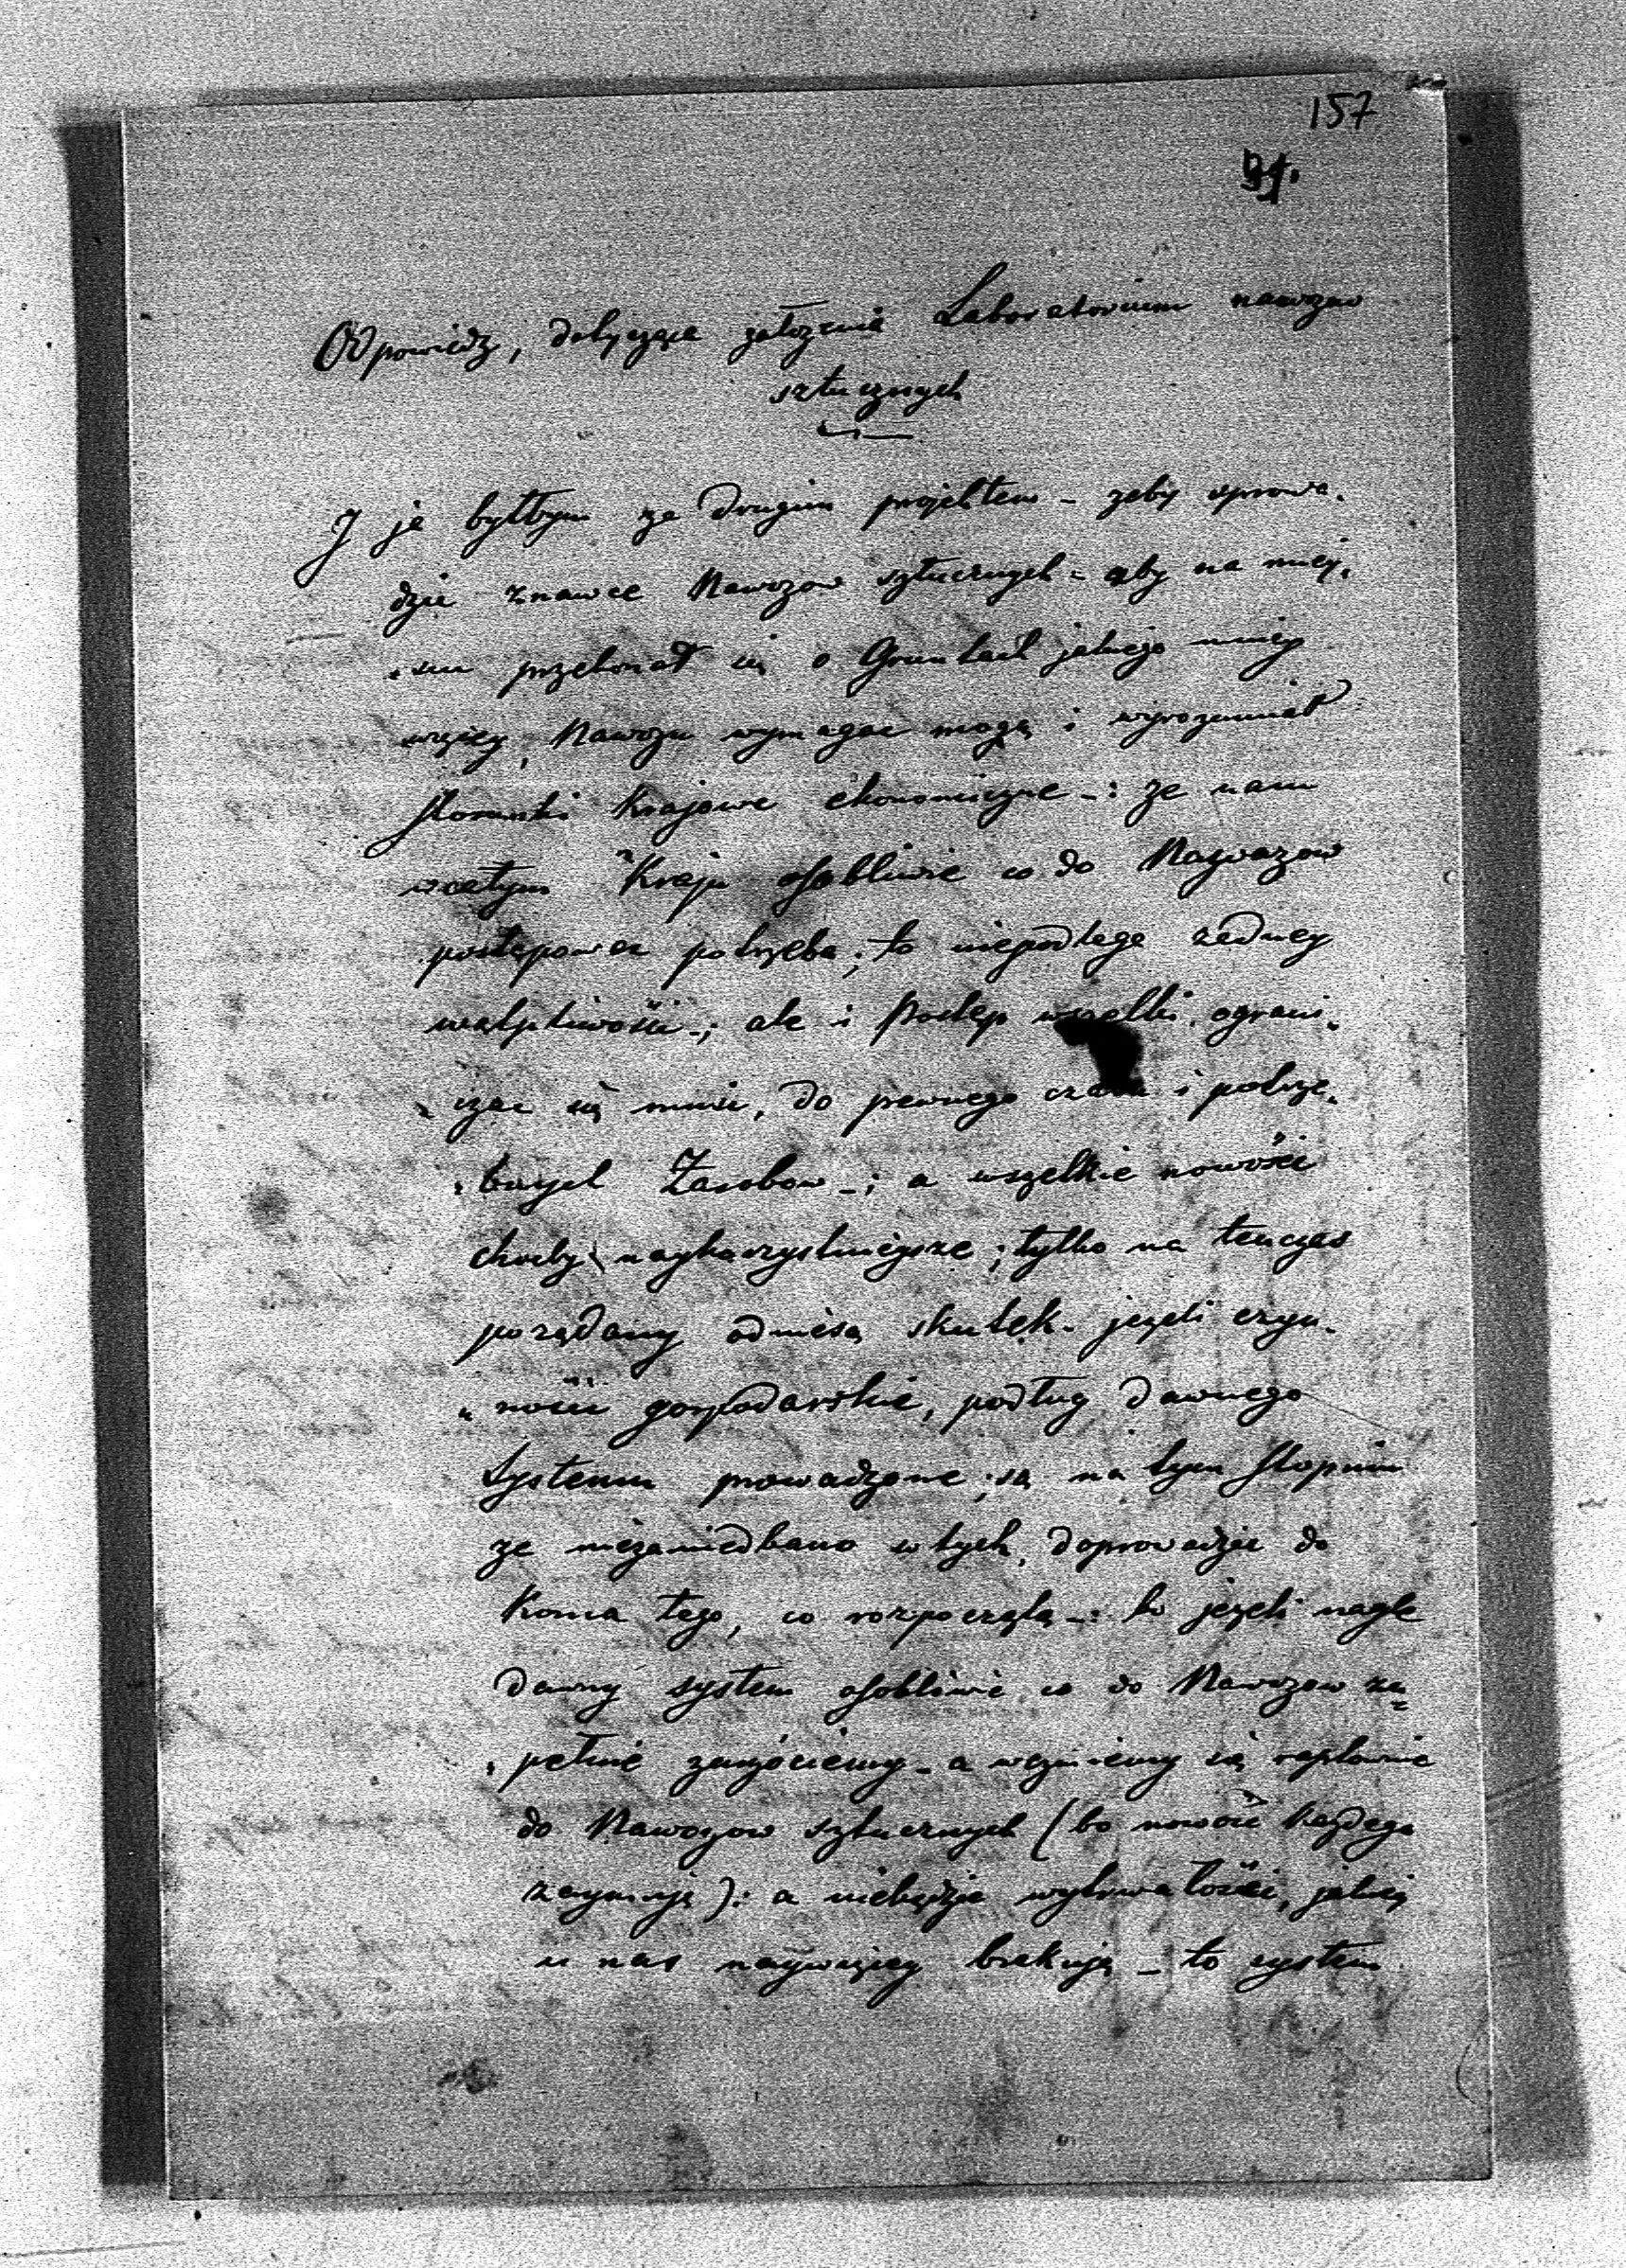 157
Odpowiedz, dotycząca załozenia Laboratorium nawozow
sztucznych
I ja byłbym za drugim projektem - zeby sprowa„
dzić znawce Nawozow sztucznych - aby na miey„
„scu przekonał się o Gruntach jakiego mniey
więcey Nawozu wymagac mogą i wyrozumiał
stosunki Krajowe ekonomiczne -: ze nam
wcałym Kraju osobliwie co do Nawozow
postępowac potrzeba; to niepodlega zadney
wątpliwości -; ale i Postęp wszelki ograni„
„czac się musi, do pewnego czasu i potrze„
„bnych Zasobow -; a wszelkie nowości
choćby naykorzystnieysze; tylko na tenczas
porządany odniosą skutek - jezeli czyn„
„ności gospodarskie, podług dawnego
Systemu prowadzone; są na tym stopniu
ze niezaniedbano w tych, doprowadzic do
Konca tego, co rozpoczęto -: bo jezeli nagle
dawny system osobliwie co do Nawozow zu„
„pełnie zarzóciemy - a wezmiemy się raptownie
do Nawozow sztucznych (bo nowość kazdego
zaymuje): a niebędzie wytrwałości, jakiej
u nas naywięcey brakuje - to system